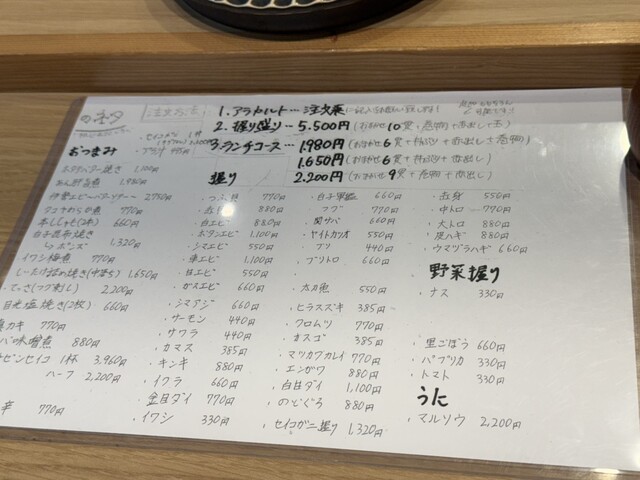 1. アラカルト…注文票
2. 握り盛り…5.500円(おまかせ10貫+巻物+赤出し+玉)
3. ランチコース…1.980円(おまかせ6貫+
1.650円(おまかせ6貫+
2.200円(おまかせ9貫+巻物+赤出し)
おつまみ
ホタテバター焼き 1,100円
あん肝煮 1,980円
伊勢エビ 2,750円
タコやわらか煮 770円
本ししゃも(2本) 660円
白子昆布焼き 1,320円
ポンズ
イワシ梅煮 770円
しいたけ詰め焼き 1,650円
てっさ(フグ刺し) 2,200円
目光塩焼き(2枚) 660円
カキ 770円
味噌煮 880円
セイコ 1杯 3,960円
ハーフ 2,200円
辛 770円
握り
・つぶ貝 770円
880円
・白エビ 880円
・ボタンエビ 1,100円
・シマエビ 550円
・車エビ 1,100円
・甘エビ 550円
・ガスエビ 660円
・シマアジ 660円
・サーモン 440円
・サワラ 440円
・カマス 385円
・キンキ 880円
・イクラ 660円
・金目ダイ 770円
・イワシ 330円
・白子軍艦 660円
・フグ 770円
・関サバ 660円
・ヤイトカツオ 550円
・ブリ 440円
・ブリトロ 660円
・太刀魚 550円
・ヒラスズキ 385円
・クロムツ 770円
・カスゴ 385円
・マツカワカレイ 770円
・エンガワ 880円
・白甘ダイ 1,100円
・のどぐろ 880円
・セイコガニ握り 1,320円
・赤身 550円
・中トロ 770円
・大トロ 880円
・炭ハギ 880円
・ウマヅラハギ 660円
野菜握り
・ナス 330円
・里ごぼう 660円
・パプリカ 330円
・トマト 330円
うに
・マルソウ 2,200円